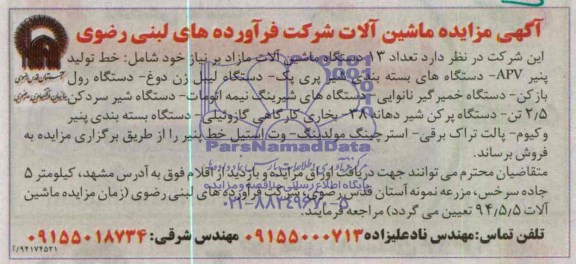 آگهی مزایده ماشین آلات شرکت فرآورده های لبنی رضوی
این شرکت در نظر دارد تعداد ۱۳ دستگاه ماشین آلات مازاد بر نیاز خود شامل: خط تولید
پنیر APV- دستگاه های بسته بندی پری پک- دستگاه لیبل زن دوغ- دستگاه رول
بازکن- دستگاه خمیرگیر نانوایی- دستگاه های شیرینگ نیمه اتومات- دستگاه شیر سردکن
۲/۵ تن- دستگاه پرکن شیر دهانه ۳۸- بخاری کارگاهی گازوئیلی- دستگاه بسته بندی پنیر
وکیوم- پالت تراک برقی- استرچینگ مولدینگ- وت استیل خط پنیر را از طریق برگزاری مزایده به
فروش برساند.
متقاضیان محترم می توانند جهت دریافت اوراق مزایده و بازدید از اقلام فوق به آدرس مشهد، کیلومتر ۵
جاده سرخس، مزرعه نمونه آستان قدس رضوی، شرکت فرآورده های لبنی رضوی (زمان مزایده ماشین
آلات ۹۴/۵/۵ تعیین می گردد) مراجعه فرمایند.
تلفن تماس: مهندس نادعلیزاده ۰۹۱۵۵۰۰۰۷۱۳ مهندس شرقی: ۰۹۱۵۵۰۱۸۷۳۴
۹۴۱۷۴۵۲۱/آ
ParsNamadData
پایگاه اطلاع رسانی مناقصه و مزایده
۰۲۱-۸۸۳۴۹۶۷۰-۵